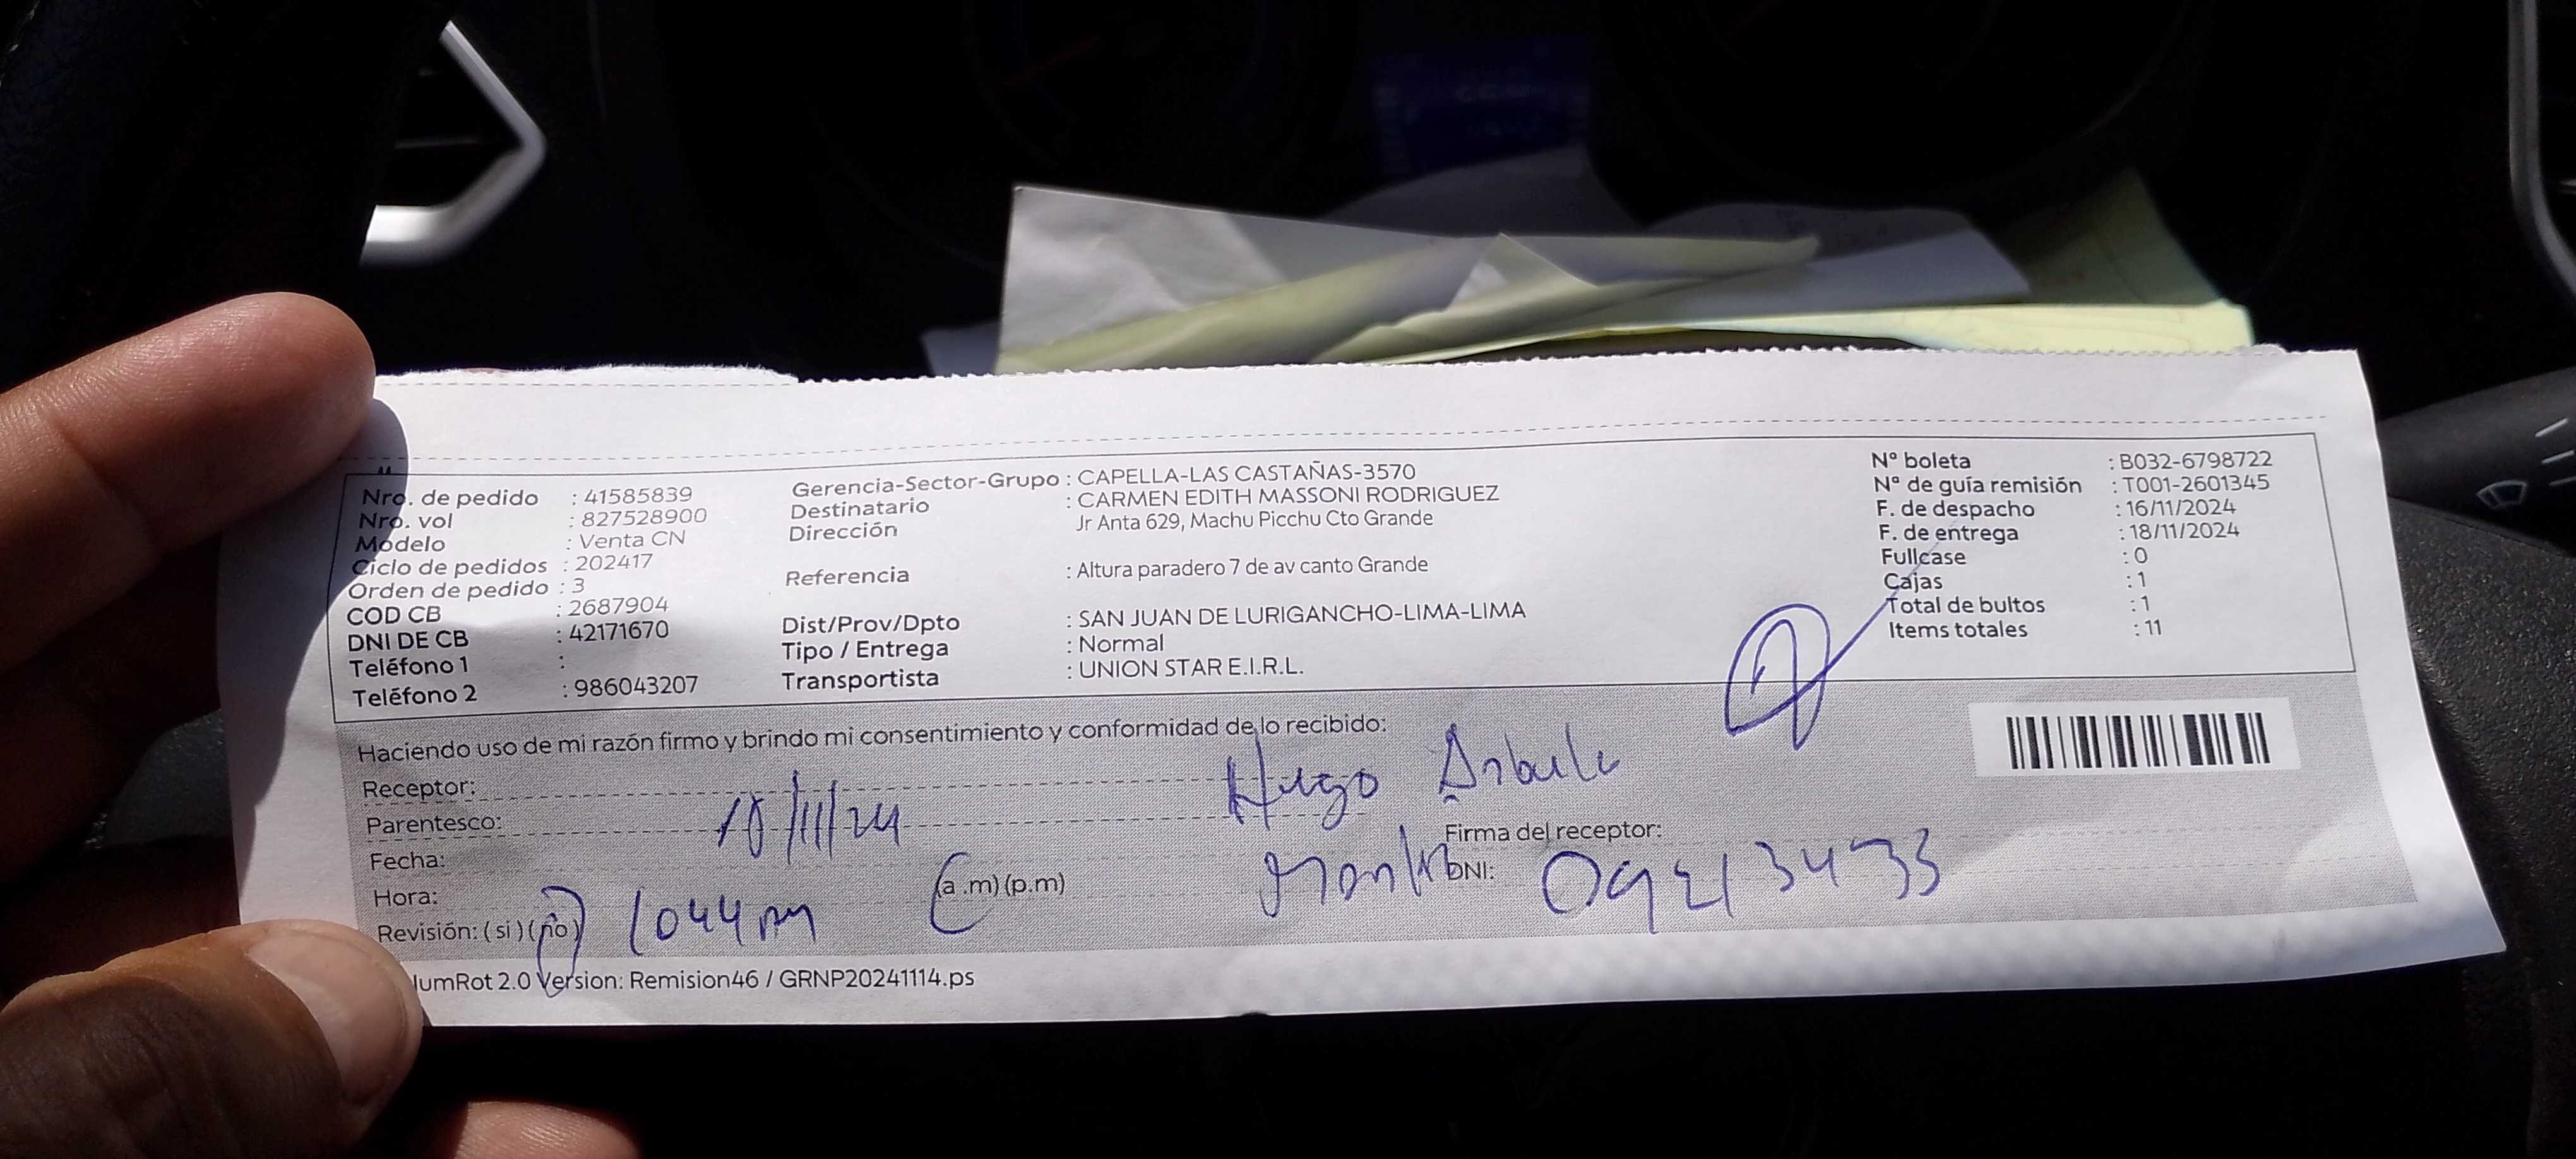 Nro. de pedido : 41585839
Nro. vol : 827528900
Modelo : Venta CN
Ciclo de pedidos : 202417
Orden de pedido : 3
COD CB : 2687904
DNI DE CB : 42171670
Teléfono 1 :
Teléfono 2 : 986043207
Gerencia-Sector-Grupo : CAPELLA-LAS CASTAÑAS-3570
Destinatario : CARMEN EDITH MASSONI RODRIGUEZ
Dirección Jr Anta 629, Machu Picchu Cto Grande
Referencia : Altura paradero 7 de av canto Grande
Dist/Prov/Dpto : SAN JUAN DE LURIGANCHO-LIMA-LIMA
Tipo / Entrega : Normal
Transportista : UNION STAR E.I.R.L.
Nº boleta : B032-6798722
Nº de guía remisión : T001-2601345
F. de despacho : 16/11/2024
F. de entrega : 18/11/2024
Fullcase : 0
Cajas : 1
Total de bultos : 1
Items totales : 11
Haciendo uso de mi razón firmo y brindo mi consentimiento y conformidad de lo recibido:
Receptor: Hugo
Parentesco:
Fecha: 18/11/24
Firma del receptor:
Hora: 1044 (a .m) (p.m)
DNI:
Revisión: ( si ) ( no )
umRot 2.0 Version: Remision46 / GRNP20241114.ps